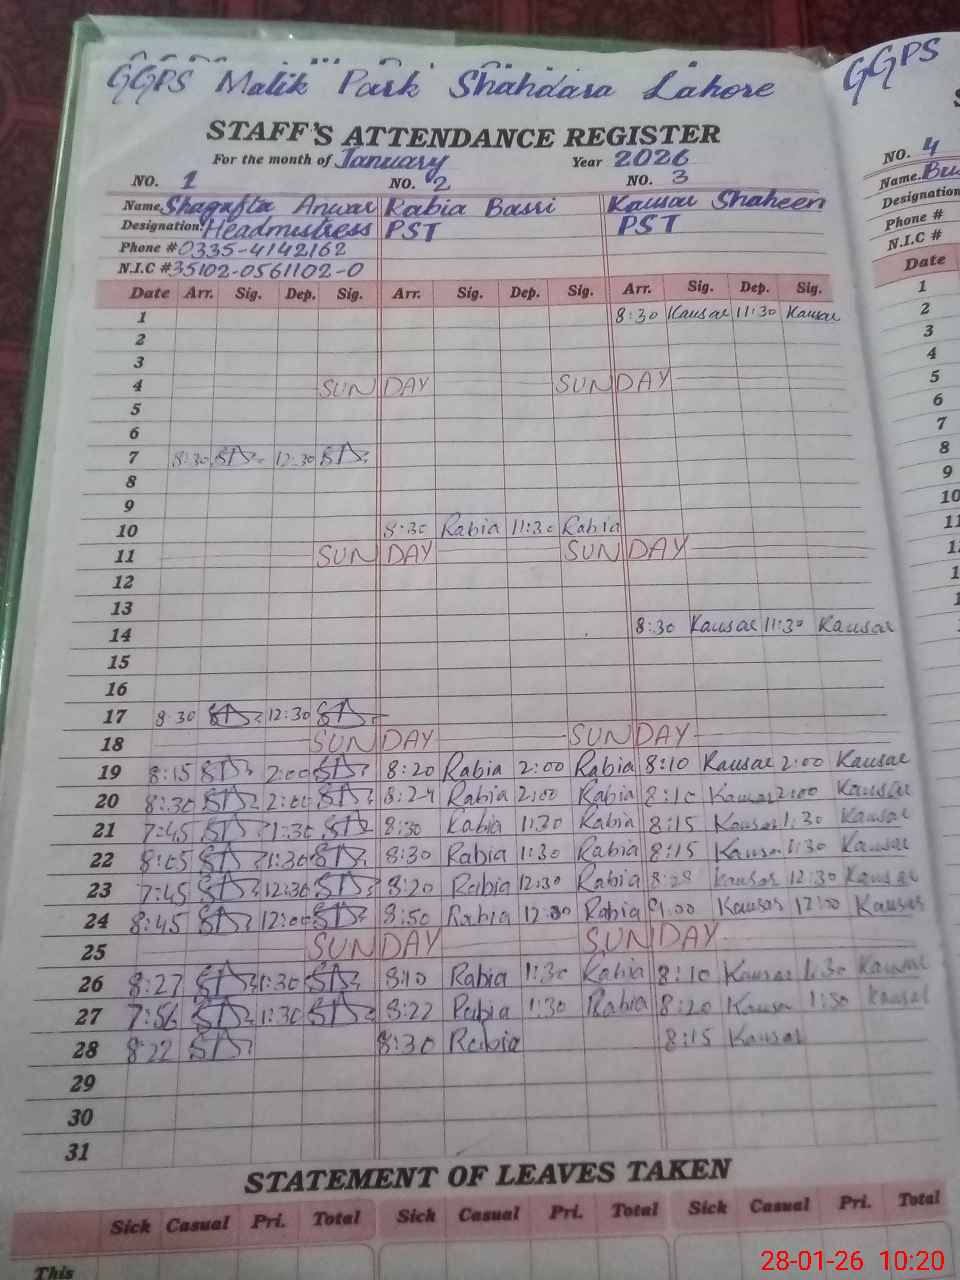 GGPS Malik Park Shahdara Lahore GGPS
STAFF'S ATTENDANCE REGISTER
For the month of January Year 2026
NO. 1 NO. 2 NO. 3 NO. 4
Name. Shagufta Anwar Rabia Basri Kausar Shaheen Name.
Designation. Headmistress PST PST Designation
Phone # 0335-4142162 Phone #
N.I.C # 35102-0561102-0 N.I.C #
Date Arr. Sig. Dep. Sig. Arr. Sig. Dep. Sig. Arr. Sig. Dep. Sig. Date
1 8:30 Kausar 11:30 Kausar 1
2 2
3 3
4 SUNDAY SUNDAY 4
5 5
6 6
7 8:30 12:30 7
8 8
9 9
10 8:30 Rabia 11:30 Rabia 10
11 SUNDAY SUNDAY 11
12
13
14 8:30 Kausar 11:30 Kausar
15
16
17 8:30 12:30
18 SUNDAY SUNDAY
19 8:15 2:00 8:20 Rabia 2:00 Rabia 8:10 Kausar 2:00 Kausar
20 8:30 2:00 8:24 Rabia 2:00 Rabia 8:10 Kausar 2:00 Kausar
21 7:45 1:30 8:30 Rabia 1:30 Rabia 8:15 Kausar 1:30 Kausar
22 8:05 1:30 8:30 Rabia 1:30 Rabia 8:15 Kausar 1:30 Kausar
23 7:45 12:30 8:20 Rabia 12:30 Rabia 8:28 Kausar 12:30 Kausar
24 8:45 12:00 8:50 Rabia 12:00 Rabia 9:00 Kausar 12:00 Kausar
25 SUNDAY SUNDAY
26 8:27 1:30 8:10 Rabia 1:30 Rabia 8:10 Kausar 1:30 Kausar
27 7:56 1:30 8:22 Rabia 1:30 Rabia 8:20 Kausar 1:30 Kausar
28 8:22 8:30 Rabia 8:15 Kausar
29
30
31
STATEMENT OF LEAVES TAKEN
Sick Casual Pri. Total Sick Casual Pri. Total Sick Casual Pri. Total
This
28-01-26 10:20